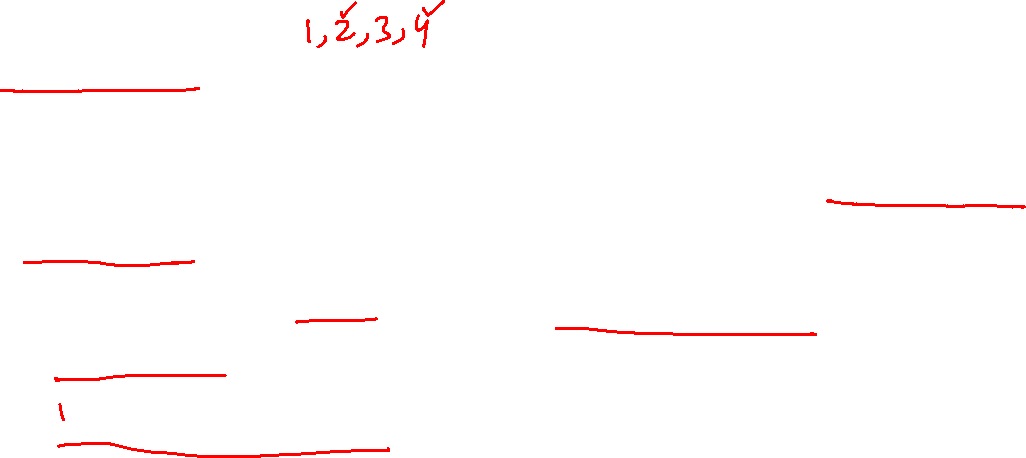 1, 2, 3, 4